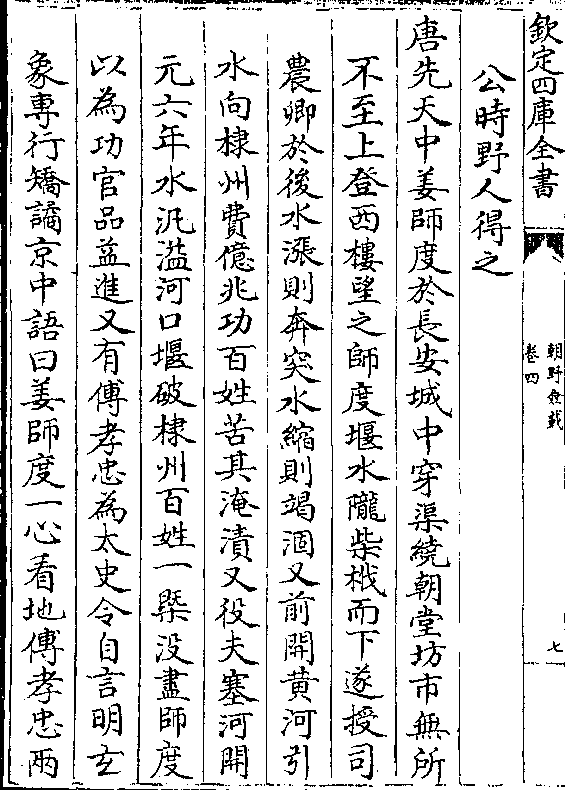 欽定四庫全書
朝野僉載
卷四
七
公時野人得之
唐先天中姜師度於長安城中穿渠繞朝堂坊市無所
不至上登西樓望之師度堰水隴柴栰而下遂授司
農卿於後水漲則奔突水縮則竭涸又前開黄河引
水向棣州費億兆功百姓苦其淹漬又役夫塞河開
元六年水汎溢河口堰破棣州百姓一槩没盡師度
以為功官品益進又有傅孝忠為太史令自言明玄
象專行矯譎京中語曰姜師度一心看地傅孝忠兩